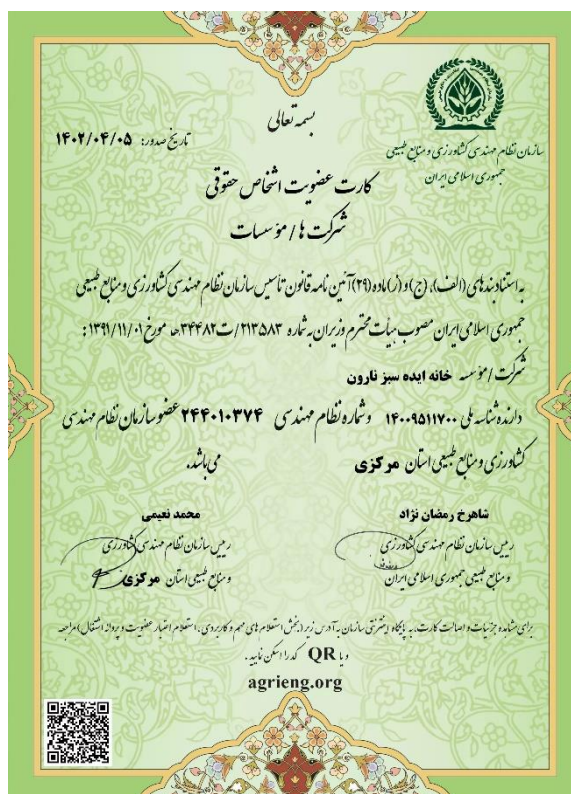 بسمه تعالی
سازمان نظام مهندسی کشاورزی و منابع طبیعی
جمهوری اسلامی ایران
تاریخ صدور: ۱۴۰۲/۰۴/۰۵
کارت عضویت اشخاص حقوقی
شرکت ها / مؤسسات
به استناد بندهای (الف)، (ج) و (ر) ماده (۲۹) آئین نامه قانون تأسیس سازمان نظام مهندسی کشاورزی و منابع طبیعی
جمهوری اسلامی ایران مصوب هیأت محترم وزیران به شماره ۲۱۳۵۸۳/ت۳۴۴۸۲ه مورخ ۱۳۹۱/۱۱/۰۱ :
شرکت / مؤسسه خانه ایده سبز نارون
دارنده شناسه ملی ۱۴۰۰۹۵۱۱۷۰۰ و شماره نظام مهندسی ۲۴۴۰۱۰۳۷۴ عضو سازمان نظام مهندسی
کشاورزی و منابع طبیعی استان مرکزی می باشد.
شاهرخ رمضان نژاد
رییس سازمان نظام مهندسی کشاورزی
و منابع طبیعی جمهوری اسلامی ایران
محمد نعیمی
رییس سازمان نظام مهندسی کشاورزی
و منابع طبیعی استان مرکزی
برای مشاهده جزئیات و اصالت کارت، به پایگاه اینترنتی سازمان به آدرس زیر (بخش استعلام های مهم و کاربردی، استعلام اعتبار عضویت و پروانه اشتغال) مراجعه
و یا QR کد را اسکن نمایید.
agrieng.org